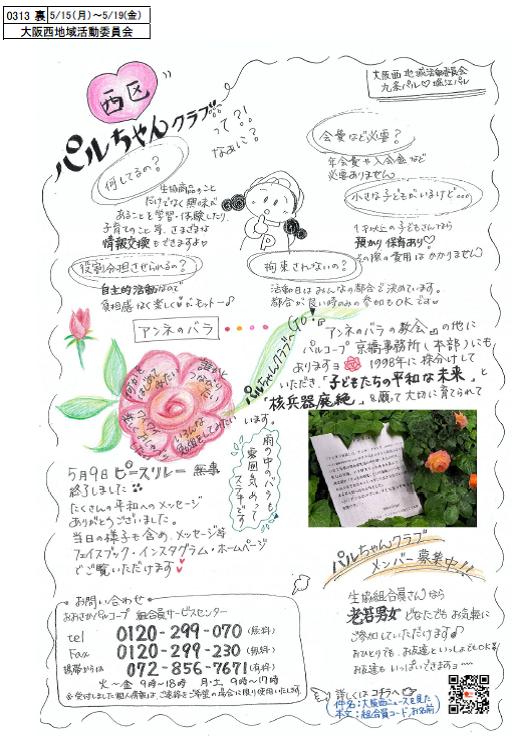 0313 裏 5/15(月)～5/19(金)
大阪西地域活動委員会
大阪西地域活動委員会
九条パル♥堀江パル
西区
パルちゃんクラブ
って?!
なぁに?
何してるの?
生協商品のこと
だけでなく興味が
あることを学習・体験したり、
子育てのこと等、さまざまな
情報交換もできますよ
会費など必要?
年会費や入会金など
必要ありません
小さな子どもがいるけど…
1才以上の子どもさんなら
預かり保育あり♡
その際の費用はかかりません
役割分担させられるの?
自主的活動なので
負担感なく楽しくがモットー♪
拘束されないの?
活動日はみんなの都合で決めています。
都合が良い時のみの参加もOKです
アンネのバラ
パルちゃんクラブへGO!
「アンネのバラの教会」の他に
パルコープ京橋事務所(本部)にも
ありますよ 1998年に株分けして
いただき、「子どもたちの平和な未来」と
「核兵器廃絶」を願って大切に育てられて
います。
何かを
はじめて
みたい
誰かと
つながり
たい
いろんな
雨の中のバラも
雰囲気あって
ステキです
5月9日ピースリレー無事
終了しました
たくさんの平和へのメッセージ
ありがとうございました。
当日の様子も含め、メッセージ等
フェイスブック・インスタグラム・ホームページ
でご覧いただけます♥
パルちゃんクラブ
メンバー募集中!!
生協組合員さんなら
老若男女どなたでもお気軽に
ご参加していただけます♪
おひとりでも、お友達といっしょでもOK
お友達もいっぱいできますョ
お問い合わせ
おおさかパルコープ 組合員サービスセンター
tel 0120-299-070(無料)
Fax 0120-299-230(無料)
携帯からは 072-856-7671(有料)
火～金 9時～18時 月・土 9時～17時
※受付しました個人情報は、ご連絡をご希望の場合に限り使用いたします。
詳しくはコチラへ
件名:大阪西ニュースを見た
本文:組合員コード、お名前